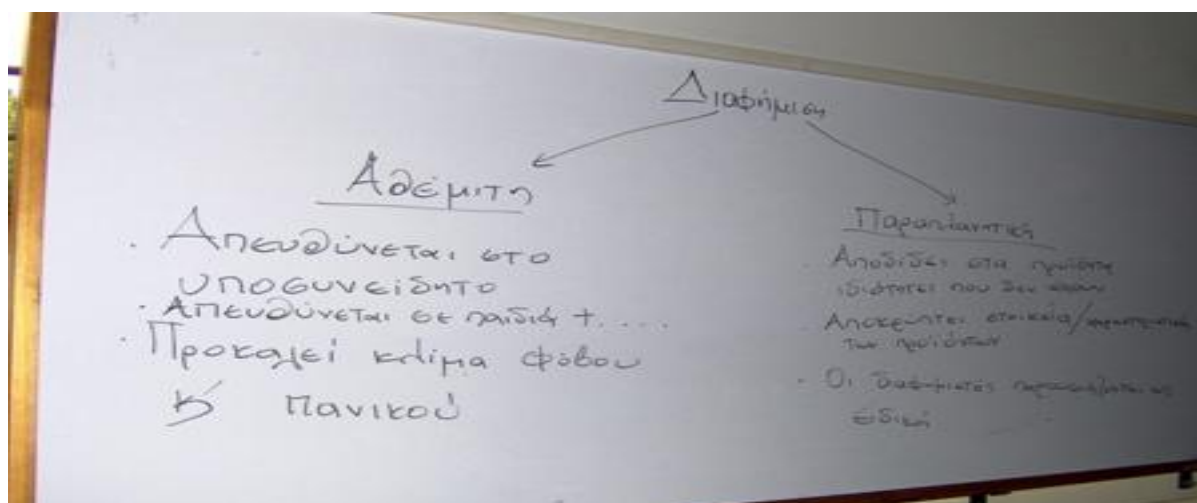 Διαφήμιση
Αθέμιτη
· Απευθύνεται στο
υποσυνείδητο
· Απευθύνεται σε παιδιά + ....
· Προκαλεί κλίμα φόβου
κ' πανικού
Παραπλανητική
· Αποδίδει στα προϊόντα
ιδιότητες που δεν έχουν
· Αποκρύπτει στοιχεία/χαρακτηριστικά
των προϊόντων
· Οι διαφημιστές παρουσιάζονται ως
ειδικοί